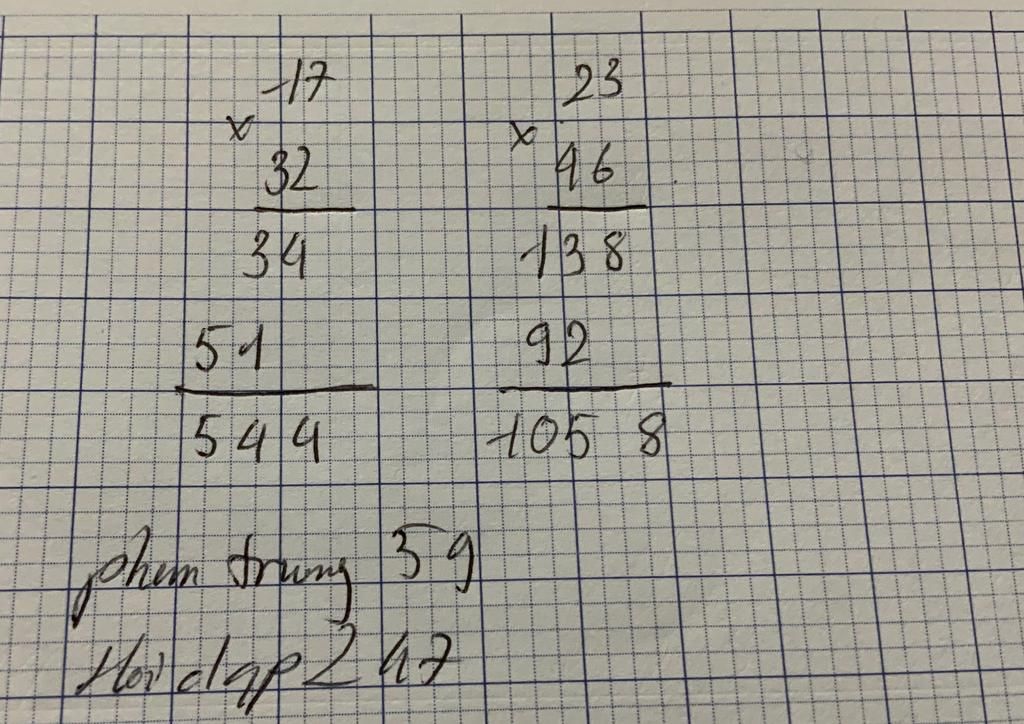 17 23
x x
32 46
34 138
51 92
544 1058
phem trung 59
Hoi dap 247